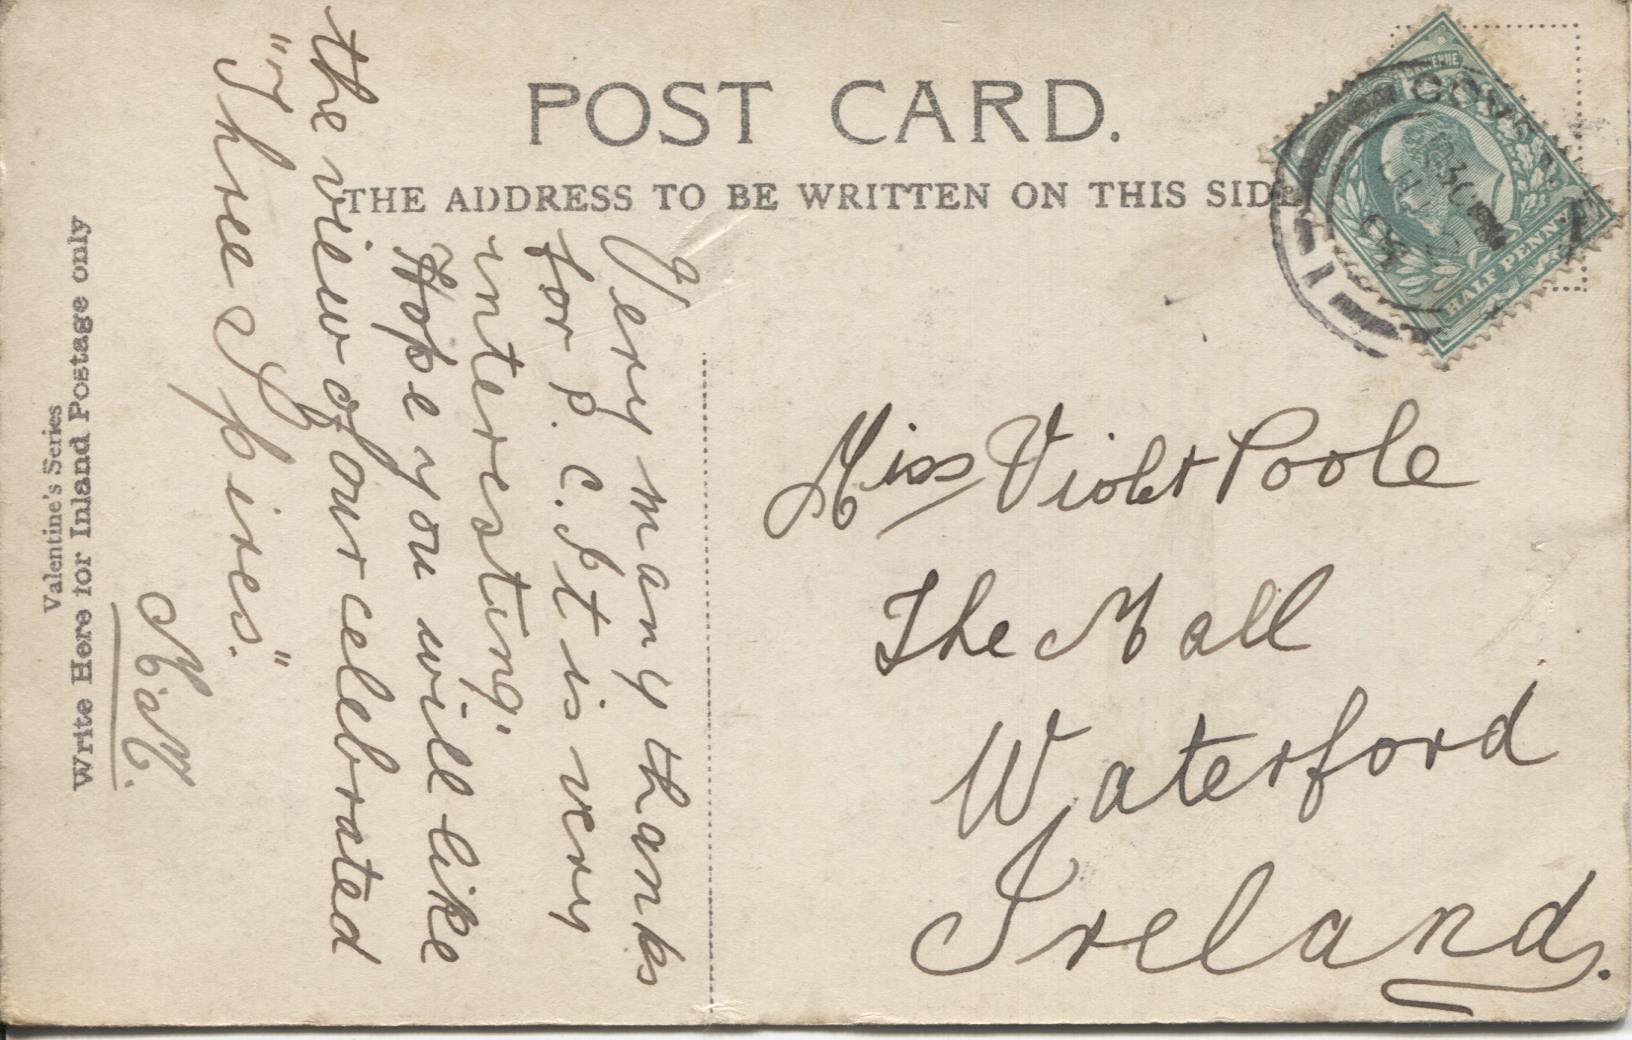 POST CARD.
THE ADDRESS TO BE WRITTEN ON THIS SIDE
Valentine's Series
Write Here for Inland Postage only
HALF PENNY
Very many thanks
for p. c. It is very
interesting.
Hope you will like
the view of our celebrated
"Three Spires."
Miss Violet Poole
The Mall
Waterford
Ireland.